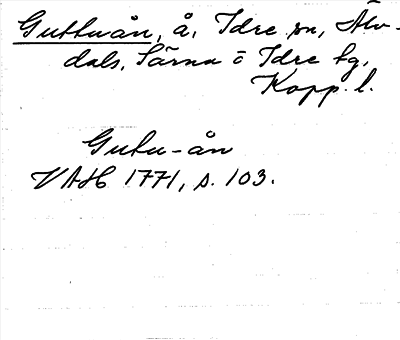 Guttuån, å, Idre sn, Älv-
dals, Särna o Idre tg,
Kopp. l.
Gutu-ån
VAH 1771, s. 103.